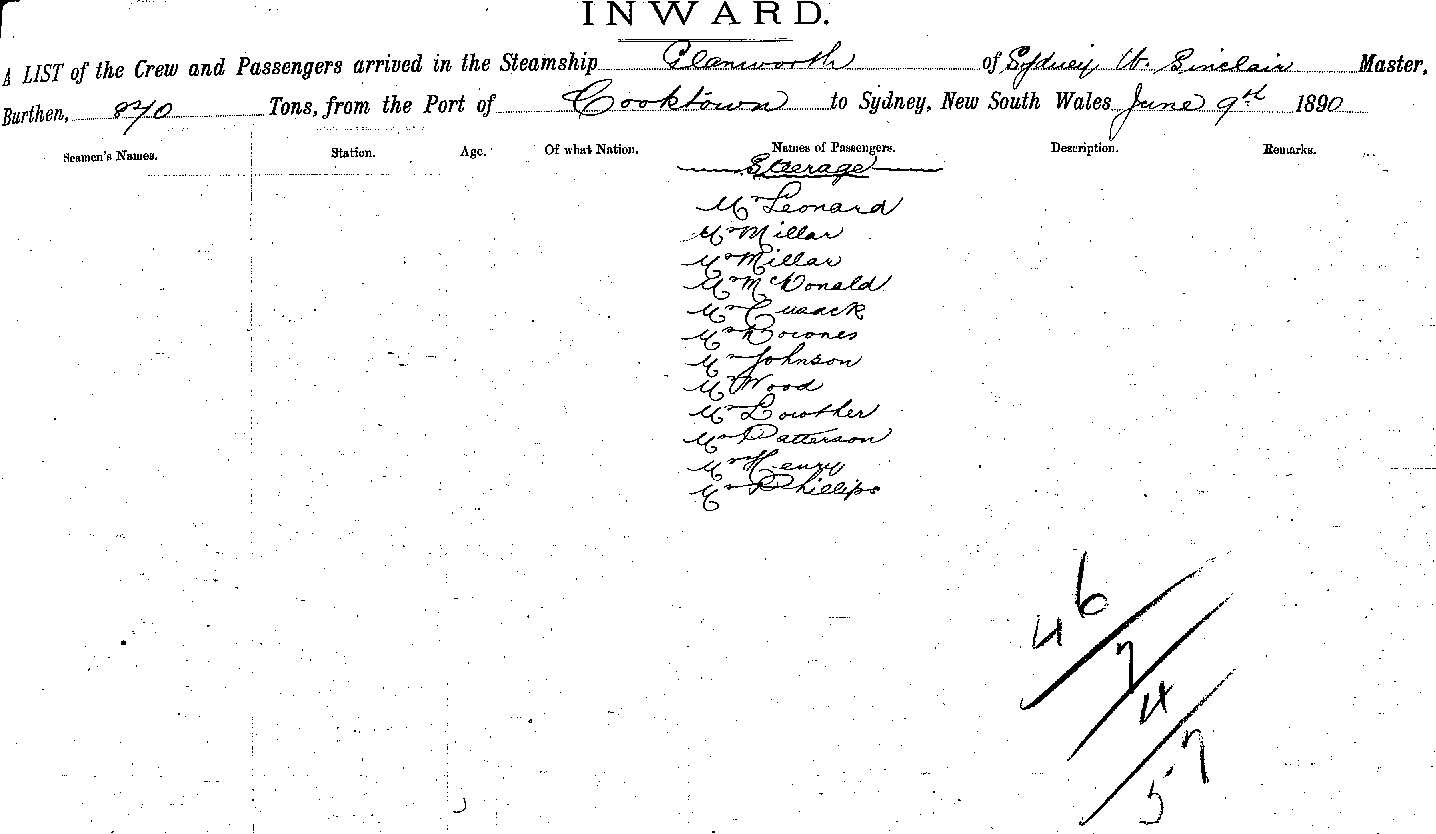 INWARD.
A LIST of the Crew and Passengers arrived in the Steamship Glanworth of Sydney W. Sinclair Master,
Burthen, 840 Tons, from the Port of Cooktown to Sydney, New South Wales June 9th 1890
Seamen's Names. Station. Age. Of what Nation. Names of Passengers. Description. Remarks.
Steerage
Mr Leonard
Mr Millar
Mr Millar
Mr McDonald
Mr Cusack
Mr Downes
Mr Johnson
Mr Wood
Mr Lowther
Mr Patterson
Mr Henry
Mr Phillips
46
7
4
57